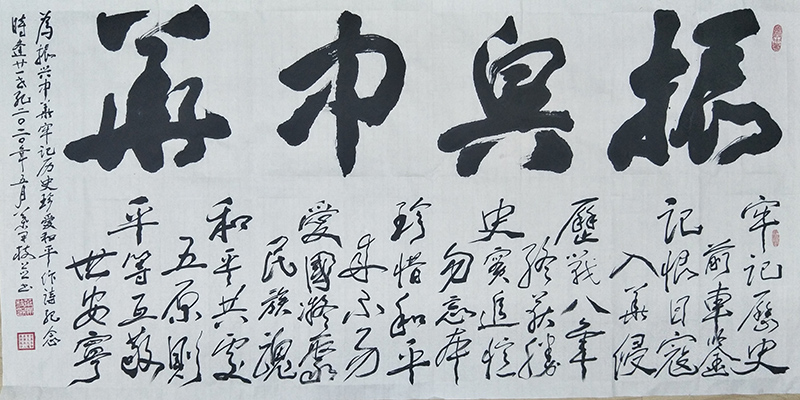 振興中華
牢记歷史
前車鉴
记恨日寇
入華侵
歷戰八年
終获勝
史實追憶
勿忘本
珍惜和平
来不易
愛國凝聚
民族魂
和平共處
五原則
平等互敬
世安寧
為振兴中華牢记历史珍愛和平作诗纪念
時逢廿一世纪二〇二〇年五月